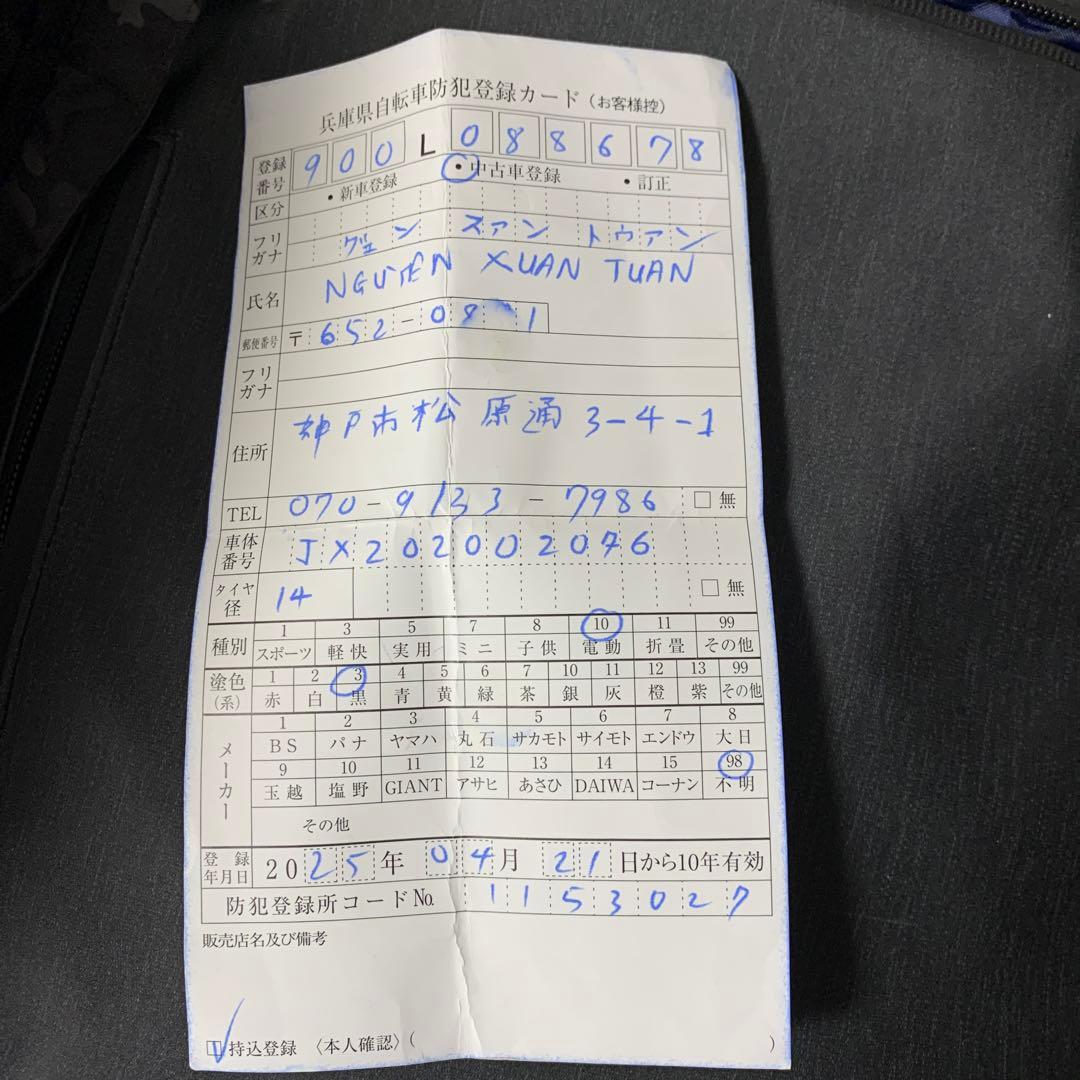 兵庫県自転車防犯登録カード（お客様控）
登録番号 900 L 088678
区分 ・新車登録 ・中古車登録 ・訂正
フリガナ グエン スアン トゥアン
氏名 NGUYEN XUAN TUAN
郵便番号 〒652-08 1
フリガナ
住所 神戸市松原通3-4-1
TEL 070-9133-7986 □無
車体番号 JX202002076
タイヤ径 14 □無
1 3 5 7 8 10 11 99
種別 スポーツ 軽快 実用 ミニ 子供 電動 折畳 その他
1 2 3 4 5 6 7 10 11 12 13 99
塗色(系) 赤 白 黒 青 黄 緑 茶 銀 灰 橙 紫 その他
メーカー
1 2 3 4 5 6 7 8
BS パナ ヤマハ 丸石 サカモト サイモト エンドウ 大日
9 10 11 12 13 14 15 98
玉越 塩野 GIANT アサヒ あさひ DAIWA コーナン 不明
その他
登録年月日 2025年04月21日から10年有効
防犯登録所コードNo. 1153027
販売店名及び備考
1 持込登録 〈本人確認〉( )